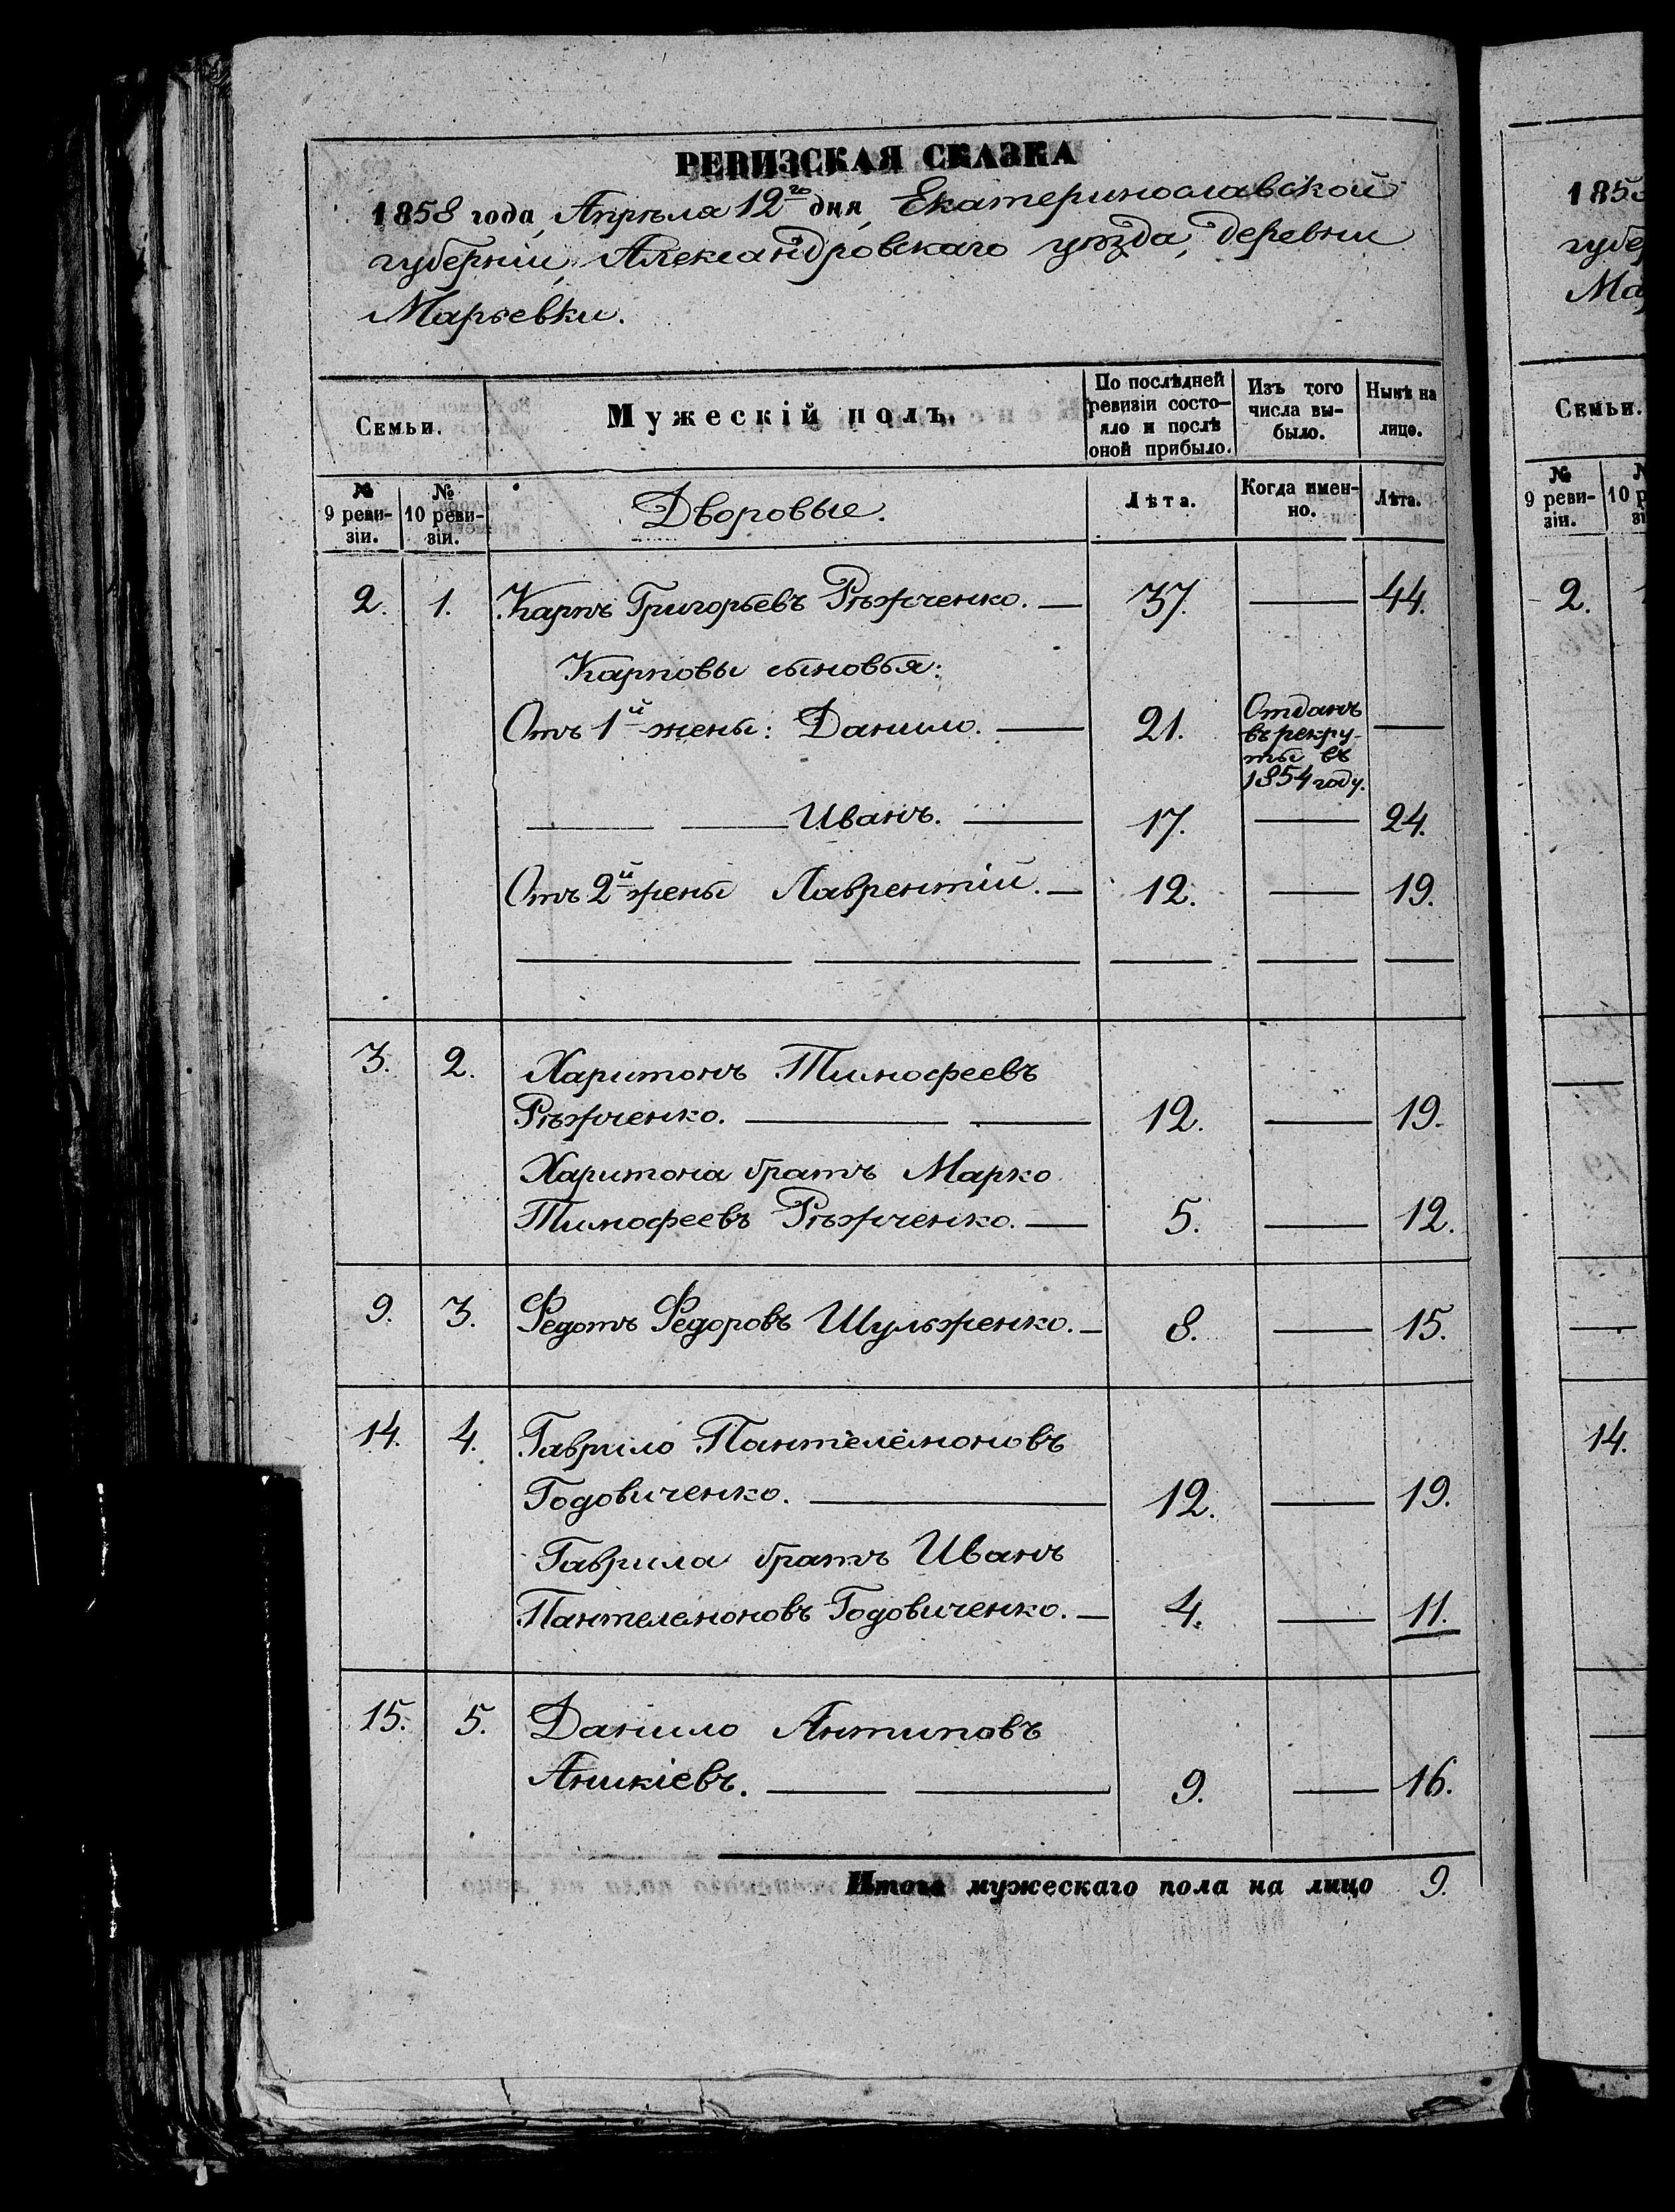 РЕВИЗСКАЯ СКАЗКА
1858 года, Апрѣля 12го дня, Екатеринославской
губерніи, Александровскаго уѣзда, деревни
Марьевки.
Семьи.
Мужескій полъ.
По послѣдней
ревизіи состо-
яло и послѣ
оной прибыло.
Изъ того
числа вы-
было.
Нынѣ на
лице.
№
9 реви-
зіи.
№
10 реви-
зіи.
Дворовые.
Лѣта.
Когда имен-
но.
Лѣта.
2. 1. Карпъ Григорьевъ Рѣжченко. — 37. — 44.
Карповы сыновья:
Отъ 1й жены: Данило. — 21. —
Отданъ
въ рекру-
ты въ
1854 году.
— — Иванъ. — 17. — 24.
Отъ 2й жены Лаврентій. — 12. — 19.
3. 2. Харитонъ Тимофеевъ
Рѣжченко. — — 12. — 19.
Харитона братъ Марко
Тимофеевъ Рѣжченко. — 5. — 12.
9. 3. Федотъ Федоровъ Шульженко. — 8. — 15.
14. 4. Гаврило Пантелемоновъ
Годовиченко. — 12. — 19.
Гаврила братъ Иванъ
Пантелемоновъ Годовиченко. — 4. — 11.
15. 5. Данило Антиповъ
Аникіевъ. — — 9. — 16.
Итого мужескаго пола на лицо 9.
185
губе
Ма
Семьи.
№
9 реви-
зіи.
№
10 р
зі
2.
14.